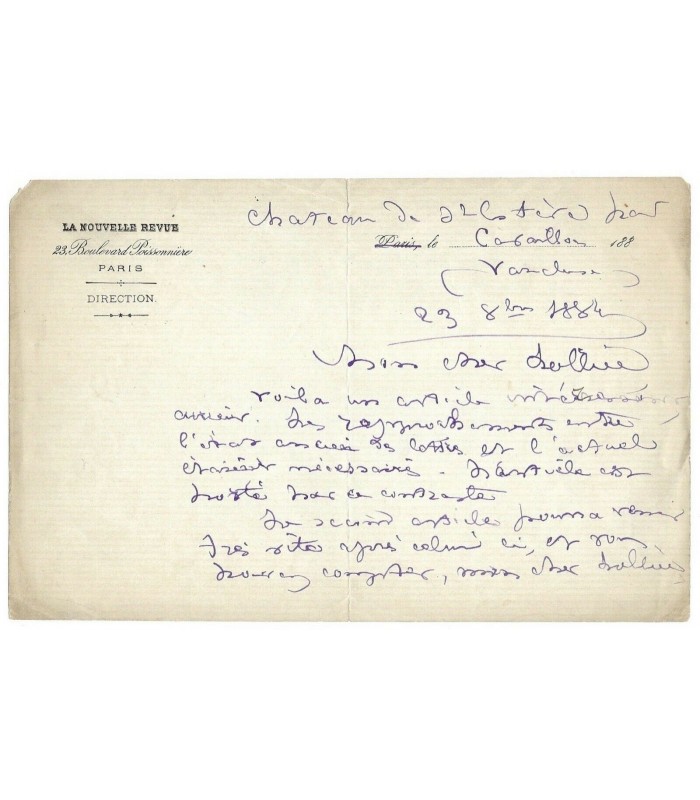 LA NOUVELLE REVUE
23, Boulevard Poissonnière
PARIS
DIRECTION.
Chateau de St Estève par
Paris, le Cavaillon 188
Vaucluse
23 8bre 1884
Mon cher
Voilà un article intéressant
curieux. Les rapprochements entre
l'état ancien des et l'actuel
étaient nécessaires. est
par ce contraste
Le second article pourra venir
très vite après celui ci, et vous
pouvez compter, mon cher